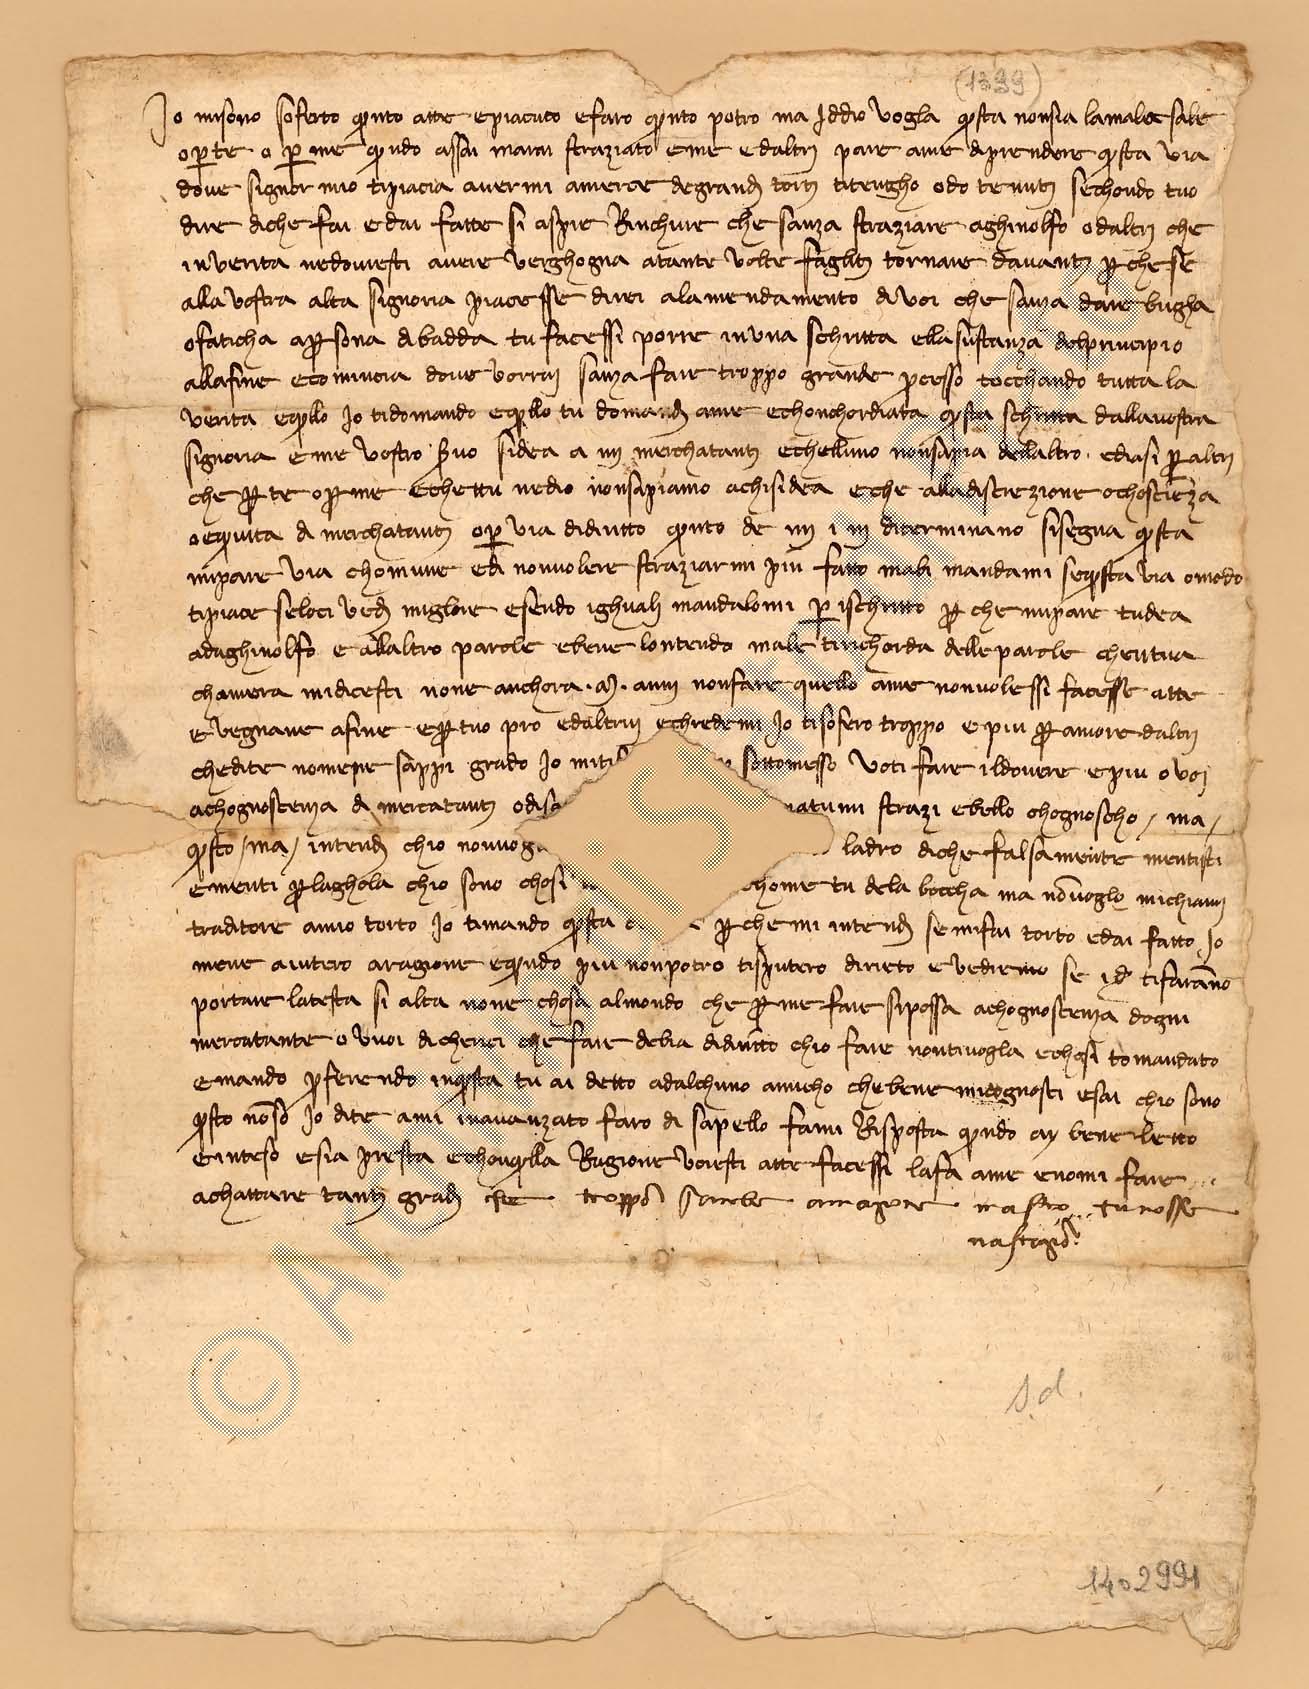 (1399)
Io misono soferto qnto atte epiaciuto efaro qnto potro ma Iddio vogla qsta nonsia lamale sale
o p te o p me qndo assai marai straziato eme edaltrj pare ame dprendere qsta via
dove signor mio tipiacia avermi amerce degrandj tortj titengho odo tenutj sechondo tuo
dire diche fai edai fatte si aspre Rinchure che sanza straziare aghinolfo odaltrj che
inverita nedovresti avere verghogna atante volte faglitj tornare davantj p che se
alla vostra alta signoria piacesse direi alamendamento di voi che sanza dare brigha
ofaticha a psona dibadda tu facessi porre inuna schritta ella sustanza dalprincipio
allafine ecomincia dove vorraj sanza fare troppo grande pcesso tocchando tutta la
verita eqllo Io tidomando eqllo tu domandj ame echonchordiata qsta schritta dallavostra
signoria eme vostro svo sidea a mj merchatantj echelluno nonsapia dellaltro. ediasi p altrj
che p te o p me echettu nedio nonsapiamo achisidea eche alla discrezione ochoscieza
o equita di merchatantj o p via didiritto qnto de mj i nj diterminano sisegua qsta
mipare via chomune edi nonvolere straziarmi piu fatto mabi mandami seqsta via omodo
tipiace seloci vedj miglore esendo ighualj mandalomi p ischritto p che mipare tudea
adaghinolfo e allaltro parole ebene lontendo male tirichorda delle parole chentua
chamera midicesti none anchora . m . anni nonfare quello ame nonvolessi facesse atte
evegnane afine e p tuo pro edaltruj echredemi Io tisofero troppo epiu p amore daltrj
chedite nomene sappi grado Io miti sottomesso voti fare ildovere epiu ovoj
achognoscenza di mercatantj odisa natumi strazi ebello chognoscho / ma /
qsto / ma / intendj chio nonvog ladro diche falsamente mentisti
ementi p laghola chio sono chosi chome tu dela boccha ma nonvoglo michiamj
traditore anno torto Io timando qsta p che mi intendj semifai torto edai fatto Io
mene aiutero aragione eqndo piu nonpotro tisputero dirieto evedremo se ido tifaranno
portare latesta si alta none chosa almondo che p me fare sipossa achognoscenza dogni
mercatante o vuoi dicherici che fare debia didiritto chio fare nontivogla echosi to mandato
emando pferendo inqsta tu ai detto adalchuno amicho chebene micognosci esai chio sono
qsto nonso Io dite ami inavanzato faro di sapello fami Risposta qndo aj bene letto
einteso esia presta echonqlla Ragione voresti atte facessi lafa ame enomi fare
achattare tantj gradj che troppo sarebe
s.d.
1402991